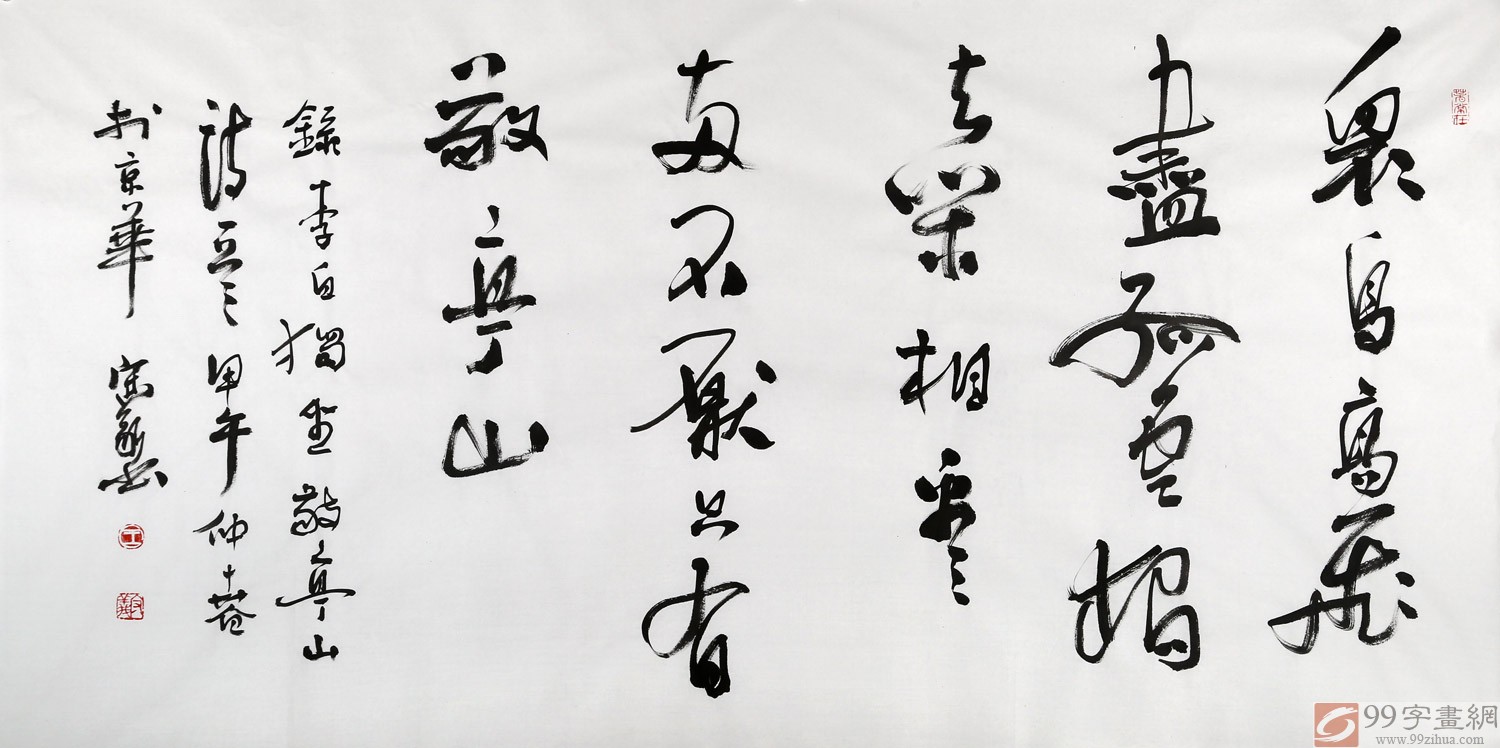 眾鳥高飛
盡孤雲獨
去閑相看
兩不厭只有
敬亭山
錄李白獨坐敬亭山
詩一首 甲午仲春
於京華
99字畫網
www.99zihua.com